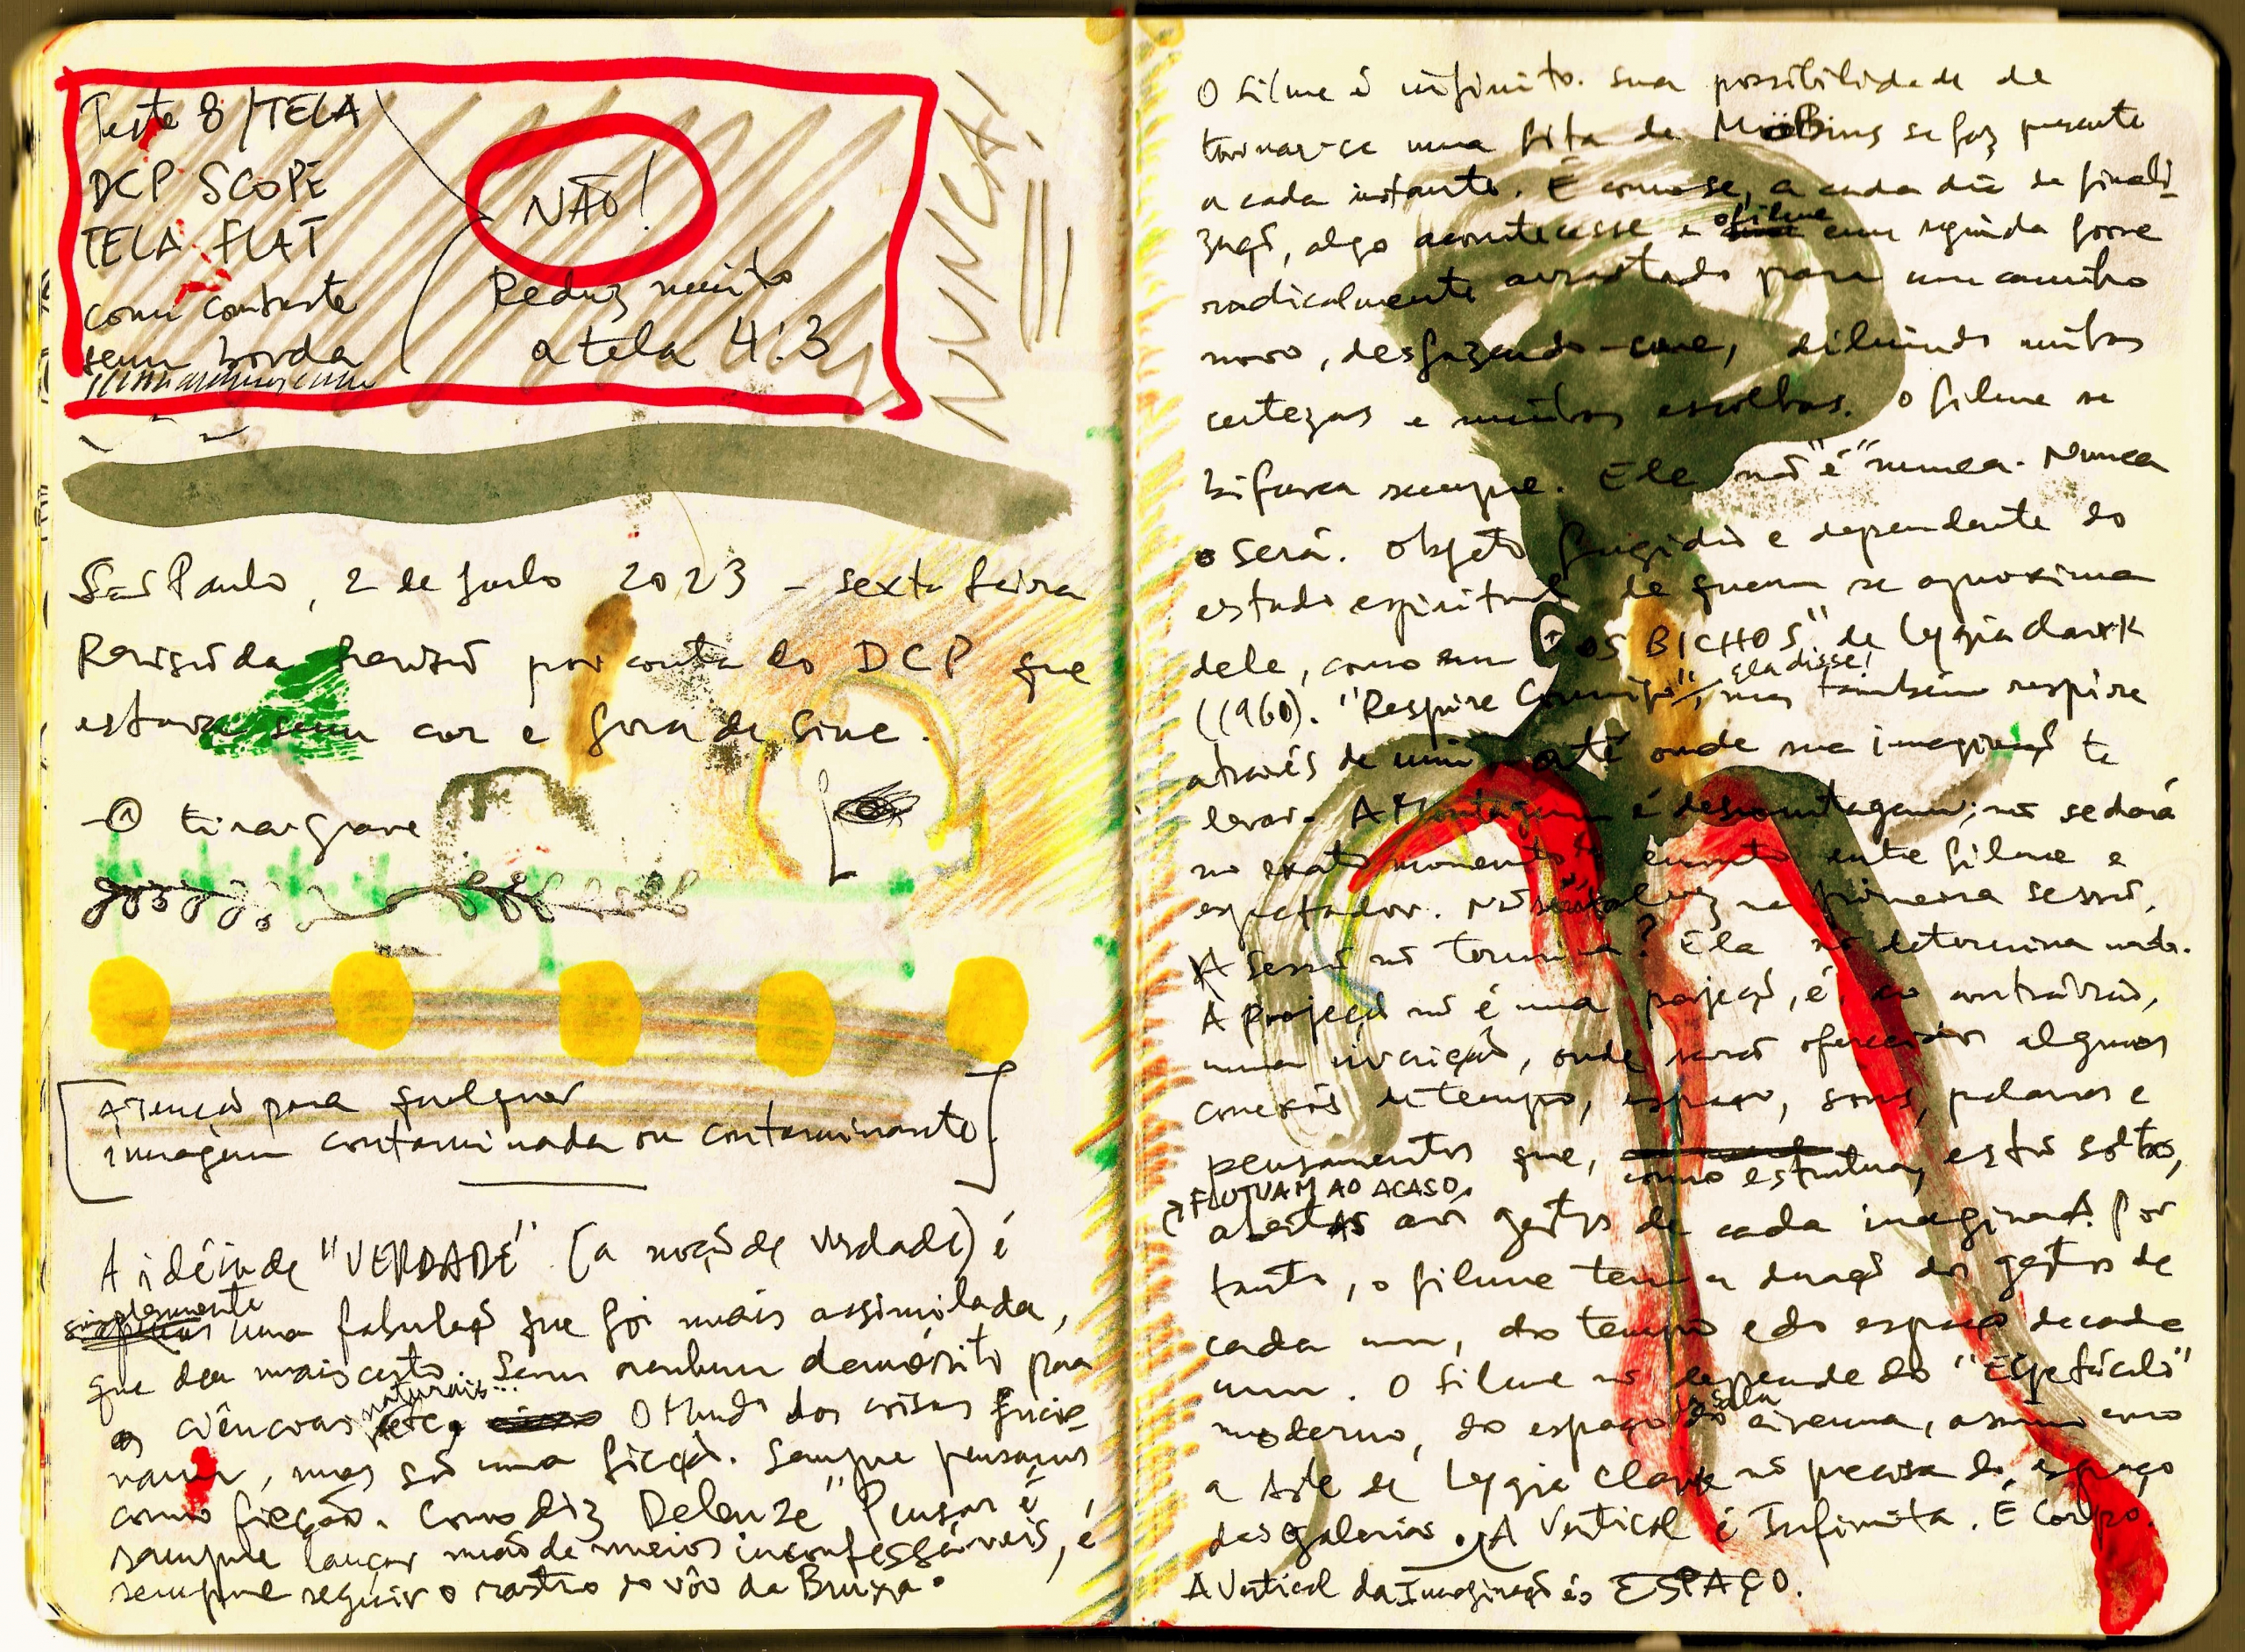 Teste 8 / TELA
DCP SCOPE
TELA FLAT
com contraste
sem borda
NÃO!
Reduz muito
a tela 4:3
NUNCA!
São Paulo, 2 de junho 2023 - sexta feira
Revisão da revisão por conta do DCP que
estava sem cor e fora de sinc.
-① tirar grave
[Atenção para qualquer
imagem contaminada ou contaminante]
A idéia de "VERDADE" (a noção de verdade) é
simplesmente
uma fabulação que foi mais assimilada,
que deu mais certo. Sem nenhum demérito para
naturais...
as ciências etc, O Mundo das coisas funcio-
nam, mas são uma ficção. Sempre pensamos
como ficção. Como diz Deleuze "Pensar é
sempre lançar mão de meios inconfessáveis, é
sempre seguir o rastro do vôo da Bruxa.
O filme é infinito. Sua possibilidade de
tornar-se uma fita de Moëbius se faz presente
a cada instante. É como se, a cada dia de finali-
zação, algo acontecesse e o filme em seguida fosse
radicalmente arrastado para um caminho
novo, desfazendo-se, diluindo minhas
certezas e minhas escolhas. O filme se
bifurca sempre. Ele não "é" nunca. Nunca
o será. Objeto fugidio e dependente do
estado espiritual de quem se aproxima
dele, como em "OS BICHOS" de Lygia Clark
(1960). "Respire Comigo", ela disse! mas também respire
através de mim até onde sua imaginação te
levar. A Montagem é desmontagem; não se dará
no exato momento do encontro entre filme e
espectador. Não talvez na primeira sessão.
A sessão não termina? Ela não determina nada.
A projeção não é uma projeção, é, ao contrário,
uma inversão, onde serão oferecidos algumas
conexões de tempo, espaço, sons, palavras e
pensamentos que, como estrutura, estão soltos,
FLUTUAM AO ACASO,
abertas aos gestos de cada imaginação. Por
tanto, o filme tem a duração dos gestos de
cada um, do tempo e do espaço de cada
um. O filme não depende do "Espetáculo"
moderno, do espaço da sala do cinema, assim como
a Arte de Lygia Clark não precisa do espaço
das galerias. A Vertical é Infinita. É Corpo.
A Vertical da Imaginação é o ESPAÇO.